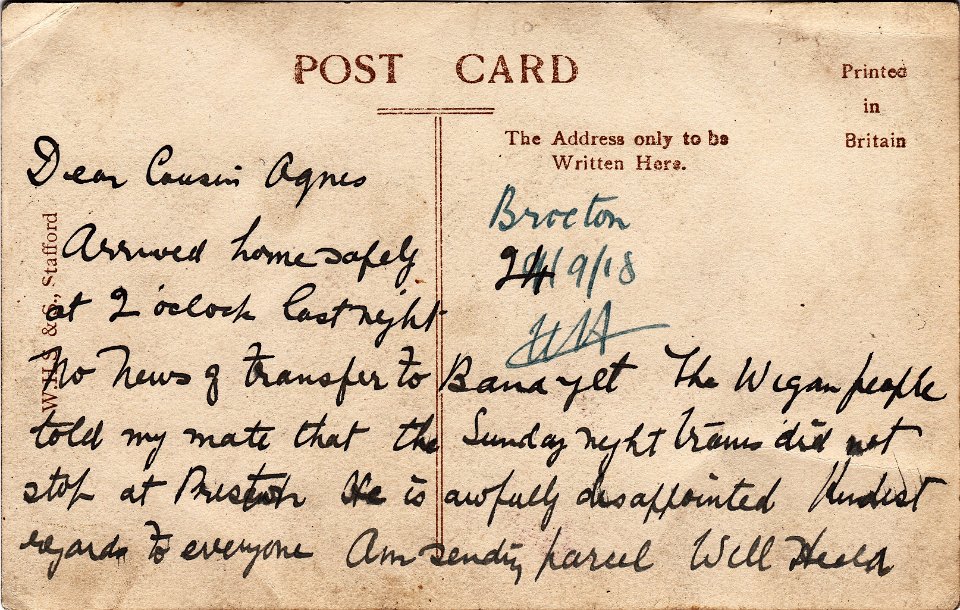 POST CARD
Printed
in
Britain
The Address only to be
Written Here.
W.H.S. & S., Stafford
Brocton
24/9/18
Dear Cousin Agnes
Arrived home safely
at 2 o'clock last night
No News of transfer to Band yet The Wigan people
told my mate that the Sunday night trams did not
stop at He is awfully disappointed Kindest
regards to everyone Am sending parcel Will Heald